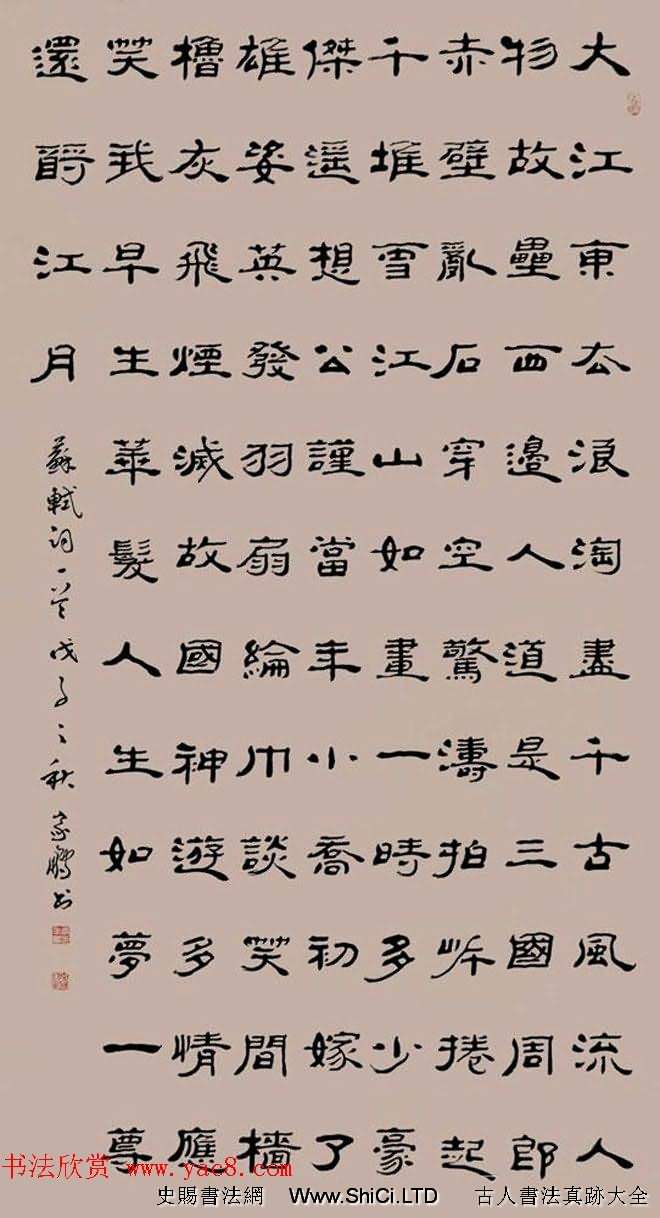 大江東去浪淘盡千古風流人
物故壘西邊人道是三國周郎
赤壁亂石穿空驚濤拍岸捲起
千堆雪江山如畫一時多少豪
傑遥想公謹當年小喬初嫁了
雄姿英發羽扇綸巾談笑間檣
櫓灰飛煙滅故國神遊多情應
笑我早生華髮人生如夢一尊
還酹江月
蘇軾詞一首戊子之秋家鵬书
书法欣赏 www.yac8.com
史賜書法網 Www.ShiCi.LTD 古人書法真跡大全